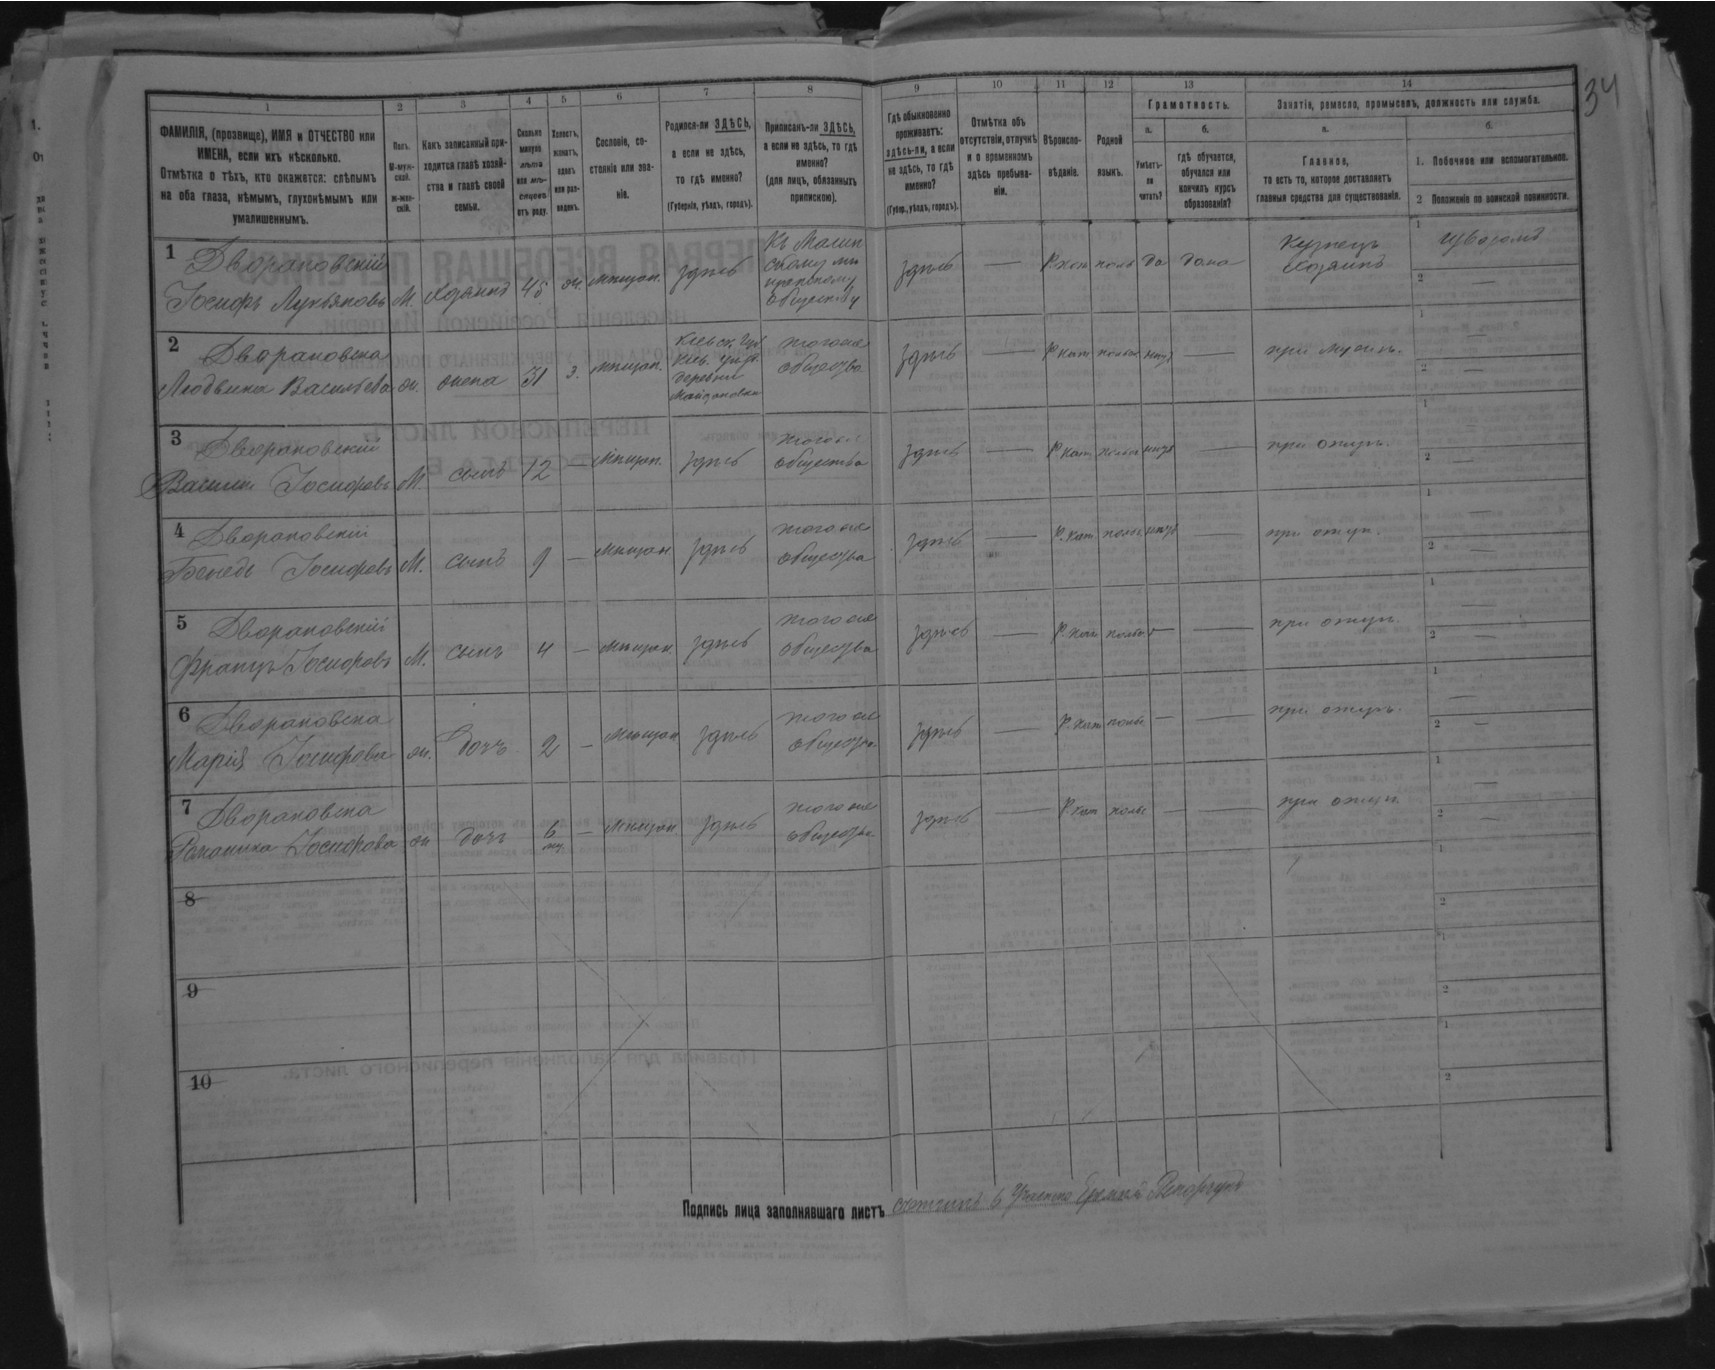 34
1 2 3 4 5 6 7 8 9 10 11 12 13 14
ФАМИЛІЯ, (прозвище), ИМЯ и ОТЧЕСТВО или
ИМЕНА, если ихъ нѣсколько.
Отмѣтка о тѣхъ, кто окажется: слѣпымъ
на оба глаза, нѣмымъ, глухонѣмымъ или
умалишеннымъ.
Полъ.
М-муж-
ской.
Ж-жен-
скій.
Какъ записанный при-
ходится главѣ хозяй-
ства и главѣ своей
семьи.
Сколько
минуло
лѣтъ
или мѣ-
сяцевъ
отъ роду.
Холостъ,
женатъ,
вдовъ
или раз-
веденъ.
Сословіе, со-
стояніе или зва-
ніе.
Родился-ли ЗДѢСЬ,
а если не здѣсь,
то гдѣ именно?
(Губернія, уѣздъ, городъ).
Приписанъ-ли ЗДѢСЬ,
а если не здѣсь, то гдѣ
именно?
(для лицъ, обязанныхъ
припискою).
Гдѣ обыкновенно
проживаетъ:
здѣсь-ли, а если
не здѣсь, то гдѣ
именно?
(Губер., уѣздъ, городъ).
Отмѣтка объ
отсутствіи, отлучкѣ
и о временномъ
здѣсь пребыва-
ніи.
Вѣроиспо-
вѣданіе.
Родной
языкъ.
Грамотность.
а.
Умѣетъ-
ли
читать?
б.
гдѣ обучается,
обучался или
кончилъ курсъ
образованія?
Занятіе, ремесло, промыселъ, должность или служба.
а.
Главное,
то есть то, которое доставляетъ
главныя средства для существованія.
б.
1. Побочное или вспомогательное.
2 Положеніе по воинской повинности.
1 Двораковскій Къ Малин Кузнецъ 1
скому ми Хозяинъ
Іосифъ Лукьяновъ М. Хозяинъ 45 ж. Мѣщан. здѣсь щанскому здѣсь — Р.кат поль да дома 2 —
обществу
2 Двораковска Кіевск. Губ. того же 1 —
Людвика Васильева ж. жена 31 з. Мѣщан. Кіев. уѣзд. общества здѣсь — Р.кат польс нѣтъ — при мужѣ. 2 —
деревни
3 Двораковскій того же 1 —
Василій Іосифовъ М. сынъ 12 — Мѣщан. здѣсь общества здѣсь — Р.кат польс нѣтъ — при отцѣ. 2 —
4 Двораковскій того же 1 —
Іосифовъ М. сынъ 9 — Мѣщан здѣсь общества здѣсь — Р.кат поль нѣтъ — при отцѣ. 2 —
5 Двораковскій того же 1 —
Францъ Іосифовъ М. сынъ 4 — Мѣщан здѣсь общества здѣсь — Р.кат польс — — при отцѣ. 2 —
6 Двораковска того же 1 —
Марія Іосифова ж. дочь 2 — Мѣщан здѣсь общества здѣсь — Р.кат поль — — при отцѣ. 2 —
7 Двораковска того же 1 —
Іосифова ж дочь 6 — Мѣщан здѣсь общества здѣсь — Р.кат поль — — при отцѣ. 2 —
мѣ.
8 1 2
9 1 2
10 1 2
Подпись лица заполнявшаго листъ счетчикъ 6 Участка